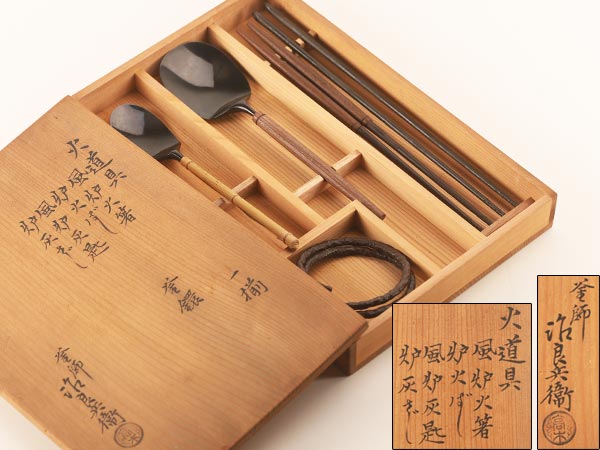 火道具
風炉火箸
炉火ばし
風炉灰匙
炉灰さじ
一揃
釜鐶
釜師
治良兵衞
火道具
風炉火箸
炉火ばし
風炉灰匙
炉灰さじ
釜師
治良兵衞